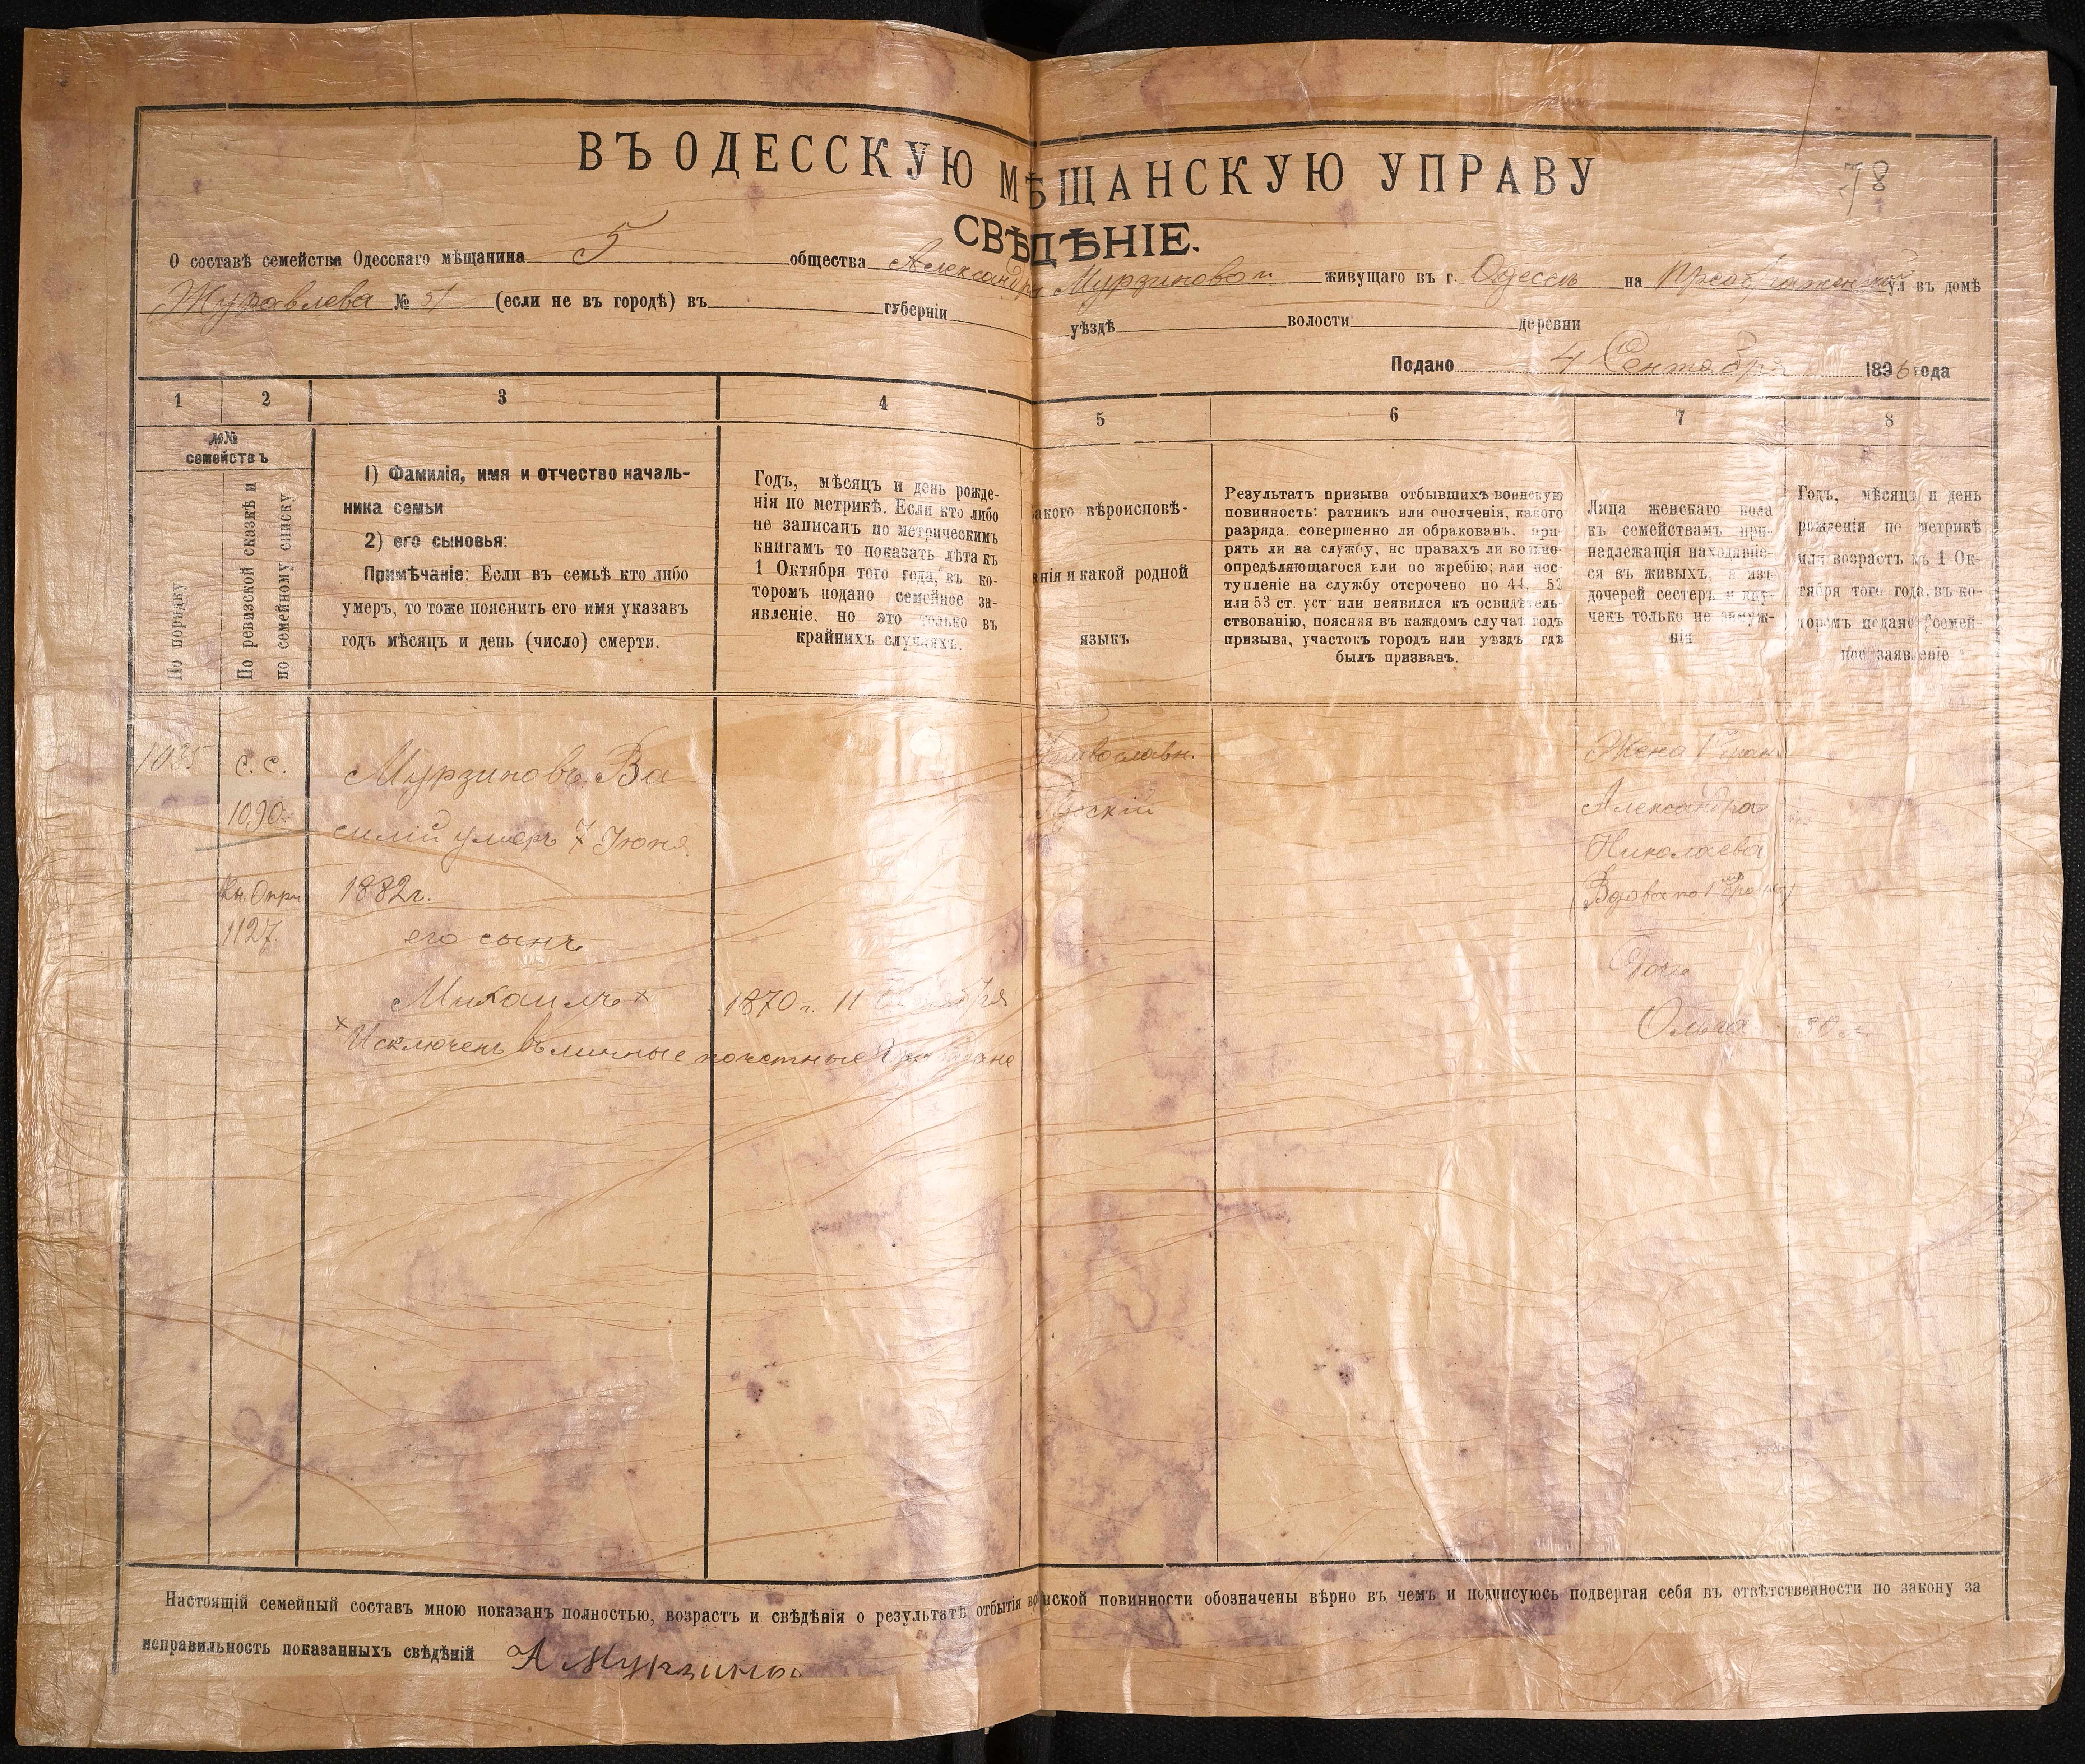 78
ВЪ ОДЕССКУЮ МѢЩАНСКУЮ УПРАВУ
СВѢДѢНІЕ.
О составѣ семейства Одесскаго мѣщанина 5 общества Александры Мурзиновой живущаго въ г. Одессѣ на Преображенской ул въ домѣ
Журавлева № 51 (если не въ городѣ) въ губерніи уѣздѣ волости деревни
Подано 4 Сентября 1896 года
1 2 3 4 5 6 7 8
№№
семействъ
По порядку
По ревизской сказкѣ и
по семейному списку
1) Фамилія, имя и отчество началь-
ника семьи
2) его сыновья:
Примѣчаніе: Если въ семьѣ кто либо
умеръ, то тоже пояснить его имя указавъ
годъ мѣсяцъ и день (число) смерти.
Годъ, мѣсяцъ и день рожде-
нія по метрикѣ. Если кто либо
не записанъ по метрическимъ
книгамъ то показать лѣта къ
1 Октября того года, въ ко-
торомъ подано семейное за-
явленіе. но это только въ
крайнихъ случаяхъ.
акого вѣроисповѣ-
анія и какой родной
языкъ
Результатъ призыва отбывшихъ воинскую
повинность: ратникъ или ополченія, какого
разряда. совершенно ли обракованъ. при-
рять ли на службу, нс правахъ ли вольно-
опредѣляющагося или по жребію; или пос-
тупленіе на службу отсрочено по 44, 52
или 53 ст. уст или неявился къ освидѣтель-
ствованію, поясняя въ каждомъ случаѣ годъ
призыва, участокъ городъ или уѣздъ гдѣ
былъ призванъ.
Лица женскаго пола
къ семействамъ при-
надлежащія находивше-
ся въ живыхъ, а изъ
дочерей сестеръ и вну-
чекъ только не замуж-
нія
Годъ, мѣсяцъ и день
рожденія по метрикѣ
или возрастъ къ 1 Ок-
тября того года, въ ко-
торомъ подано семей-
ное заявленіе
1035 с. с. Мурзиновъ Ва
1090 силій умеръ 7 Іюня
1882г.
1127 его сынъ
Михаилъ × 1870 г. 11
× Исключенъ въ личные почетные Граждане
Православн.
Русскій
Жена
Александра
Николаева
Дочь
Ольга 30 л.
Настоящій семейный составъ мною показанъ полностью, возрастъ и свѣдѣнія о результатѣ отбытія воинской повинности обозначены вѣрно въ чемъ и подписуюсь подвергая себя въ отвѣтственности по закону за
неправильность показанныхъ свѣдѣній А Мурзинова